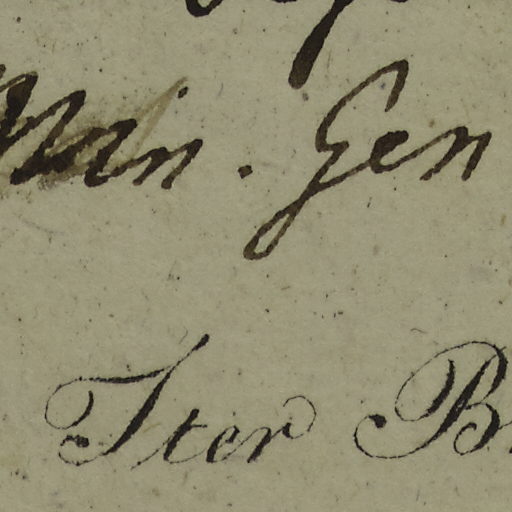 Min. Gen
Iter B